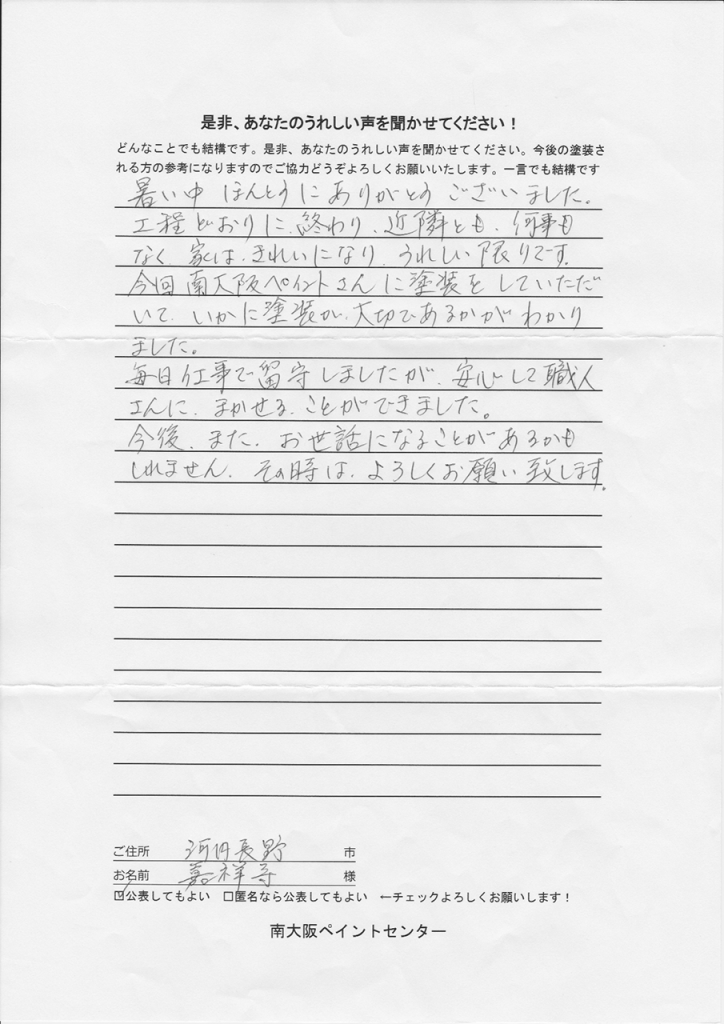 是非、あなたのうれしい声を聞かせてください！
どんなことでも結構です。是非、あなたのうれしい声を聞かせてください。今後の塗装さ
れる方の参考になりますのでご協力どうぞよろしくお願いいたします。一言でも結構です
暑い中 ほんとうにありがとうございました。
工程どおりに、終わり、近隣とも、何事も
なく、家は、きれいになり、うれしい限りです。
今回南大阪ペイントさんに塗装をしていただ
いて、いかに塗装が、大切であるかがわかり
ました。
毎日仕事で留守しましたが、安心して職人
さんに、まかせる、ことができました。
今後、また、お世話になることがあるかも
しれません、その時は、よろしくお願い致します。
ご住所 河内長野 市
お名前 嘉祥寺 様
☑公表してもよい □匿名なら公表してもよい ←チェックよろしくお願いします！
南大阪ペイントセンター